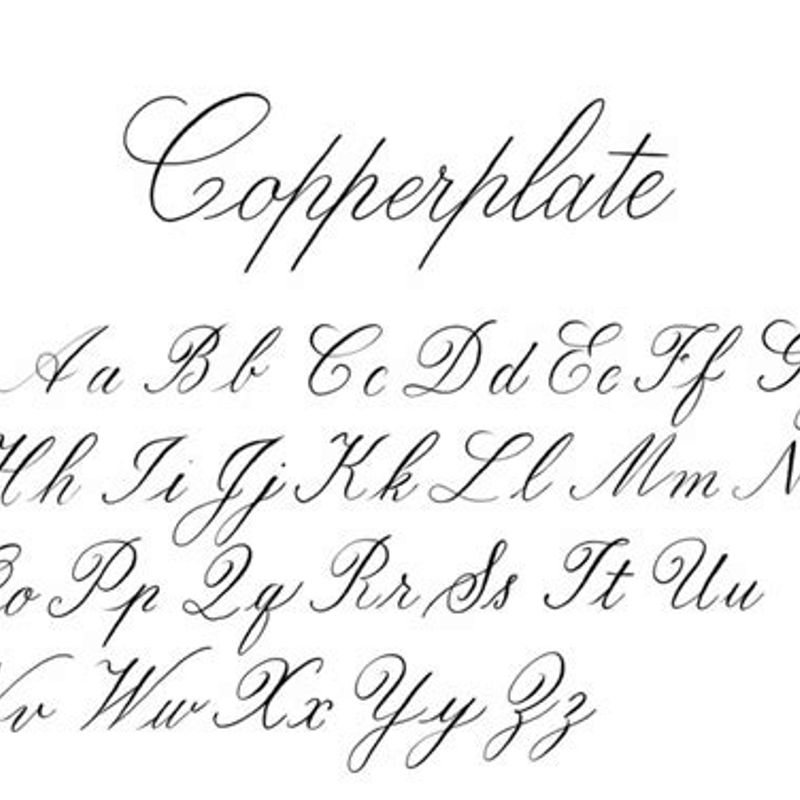 Copperplate
Aa Bb Cc Dd Ee Ff G
Hh Ii Jj Kk Ll Mm N
Oo Pp Qq Rr Ss Tt Uu
Vv Ww Xx Yy Zz